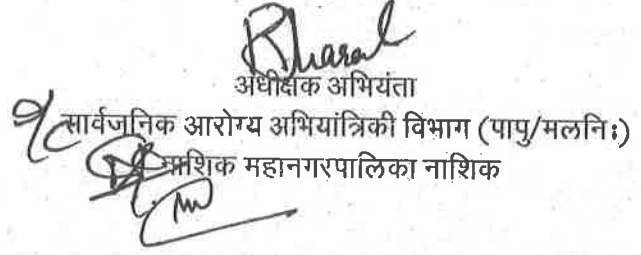 अधीक्षक अभियंता
सार्वजनिक आरोग्य अभियांत्रिकी विभाग (पापु/मलनिः)
नाशिक महानगरपालिका नाशिक